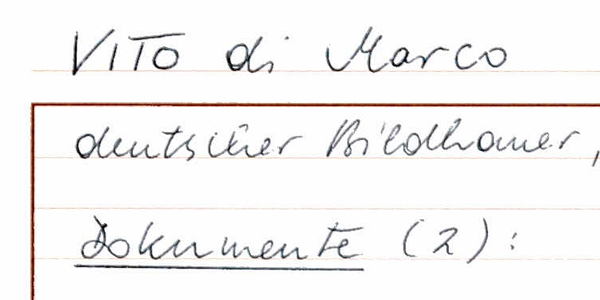 VITO di Marco
deutscher Bildhauer,
Dokumente (2):